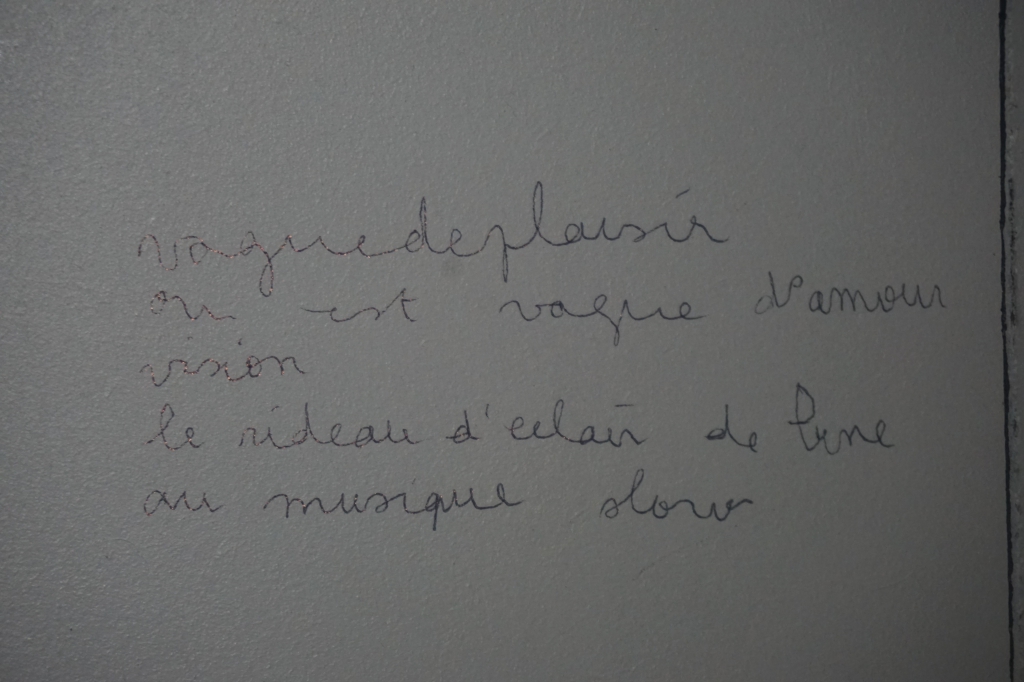 vague de plaisir
ou est vague d'amour
vision
le rideau d'eclair de lune
au musique slow